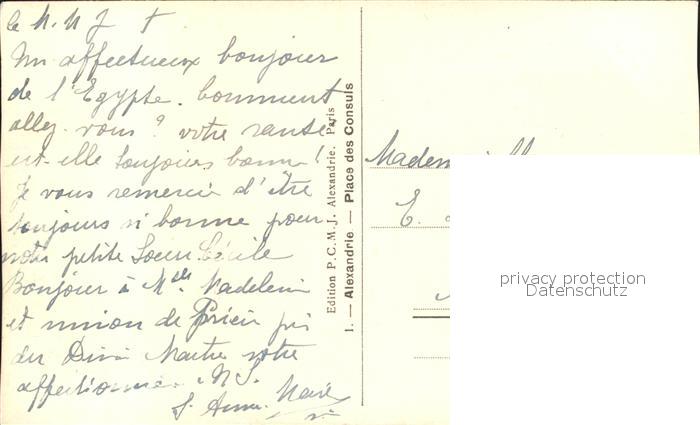 Un affectueux bonjour
de l'Egypte. Comment
allez-vous? votre santé
est-elle toujours bonne!
Je vous remercie d'être
toujours si bonne pour
notre petite Soeur Cécile
Bonjour à Mlle Madeleine
et union de Prière près
du Divin Maître votre
affectionnée
S. Anne Marie
Edition P. C. M. J. Alexandrie. Paris
1. — Alexandrie — Place des Consuls
E.
privacy protection
Datenschutz